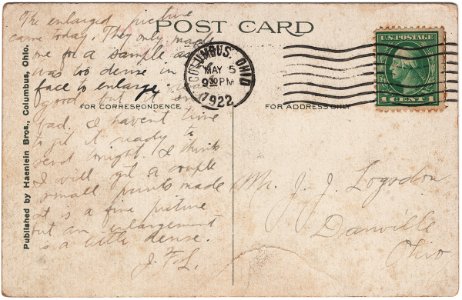 POST CARD
The enlarged picture
came today. They only made
me for a sample as
was too dense in
face is enlarge
good but it
bad. I haven't time
to get it ready to
send tonight. I think
I will get a couple
small prints made
it is a fine picture
but an enlargement
is a little dense.
J. F. L.
FOR CORRESPONDENCE
FOR ADDRESS ONLY
COLUMBUS, OHIO
MAY 5
9 30 PM
1922
U.S. POSTAGE
1 CENT 1
Mr. J. J. Logsdon
Danville
Ohio
Published by Haenlein Bros., Columbus, Ohio.